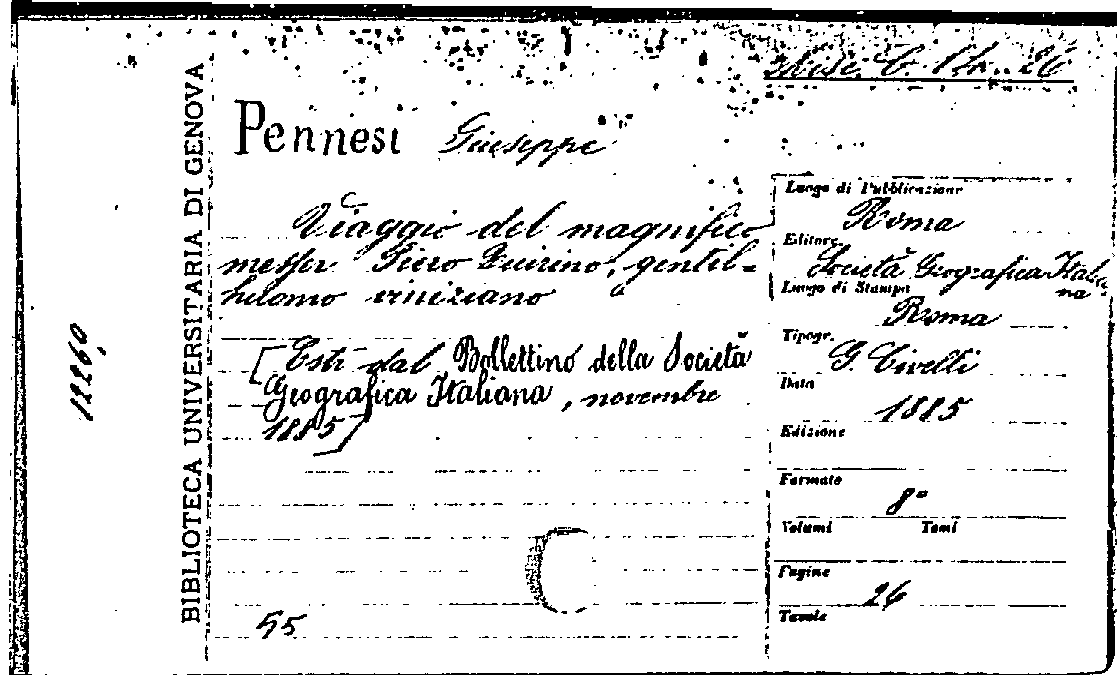 Misc. C. 14. 26
BIBLIOTECA UNIVERSITARIA DI GENOVA
12260
Pennesi Giuseppe
Viaggio del magnifico
messer Piero Quirino, gentil-
huomo viniziano
[Estr. dal Bollettino della Società
Geografica Italiana, novembre
1885]
55
Luogo di Pubblicazione
Roma
Editore
Società Geografica Italia
na
Luogo di Stampa
Roma
Tipogr.
G. Civelli
Data
1885
Edizione
Formato
8°
Volumi Tomi
Pagine
26
Tavole